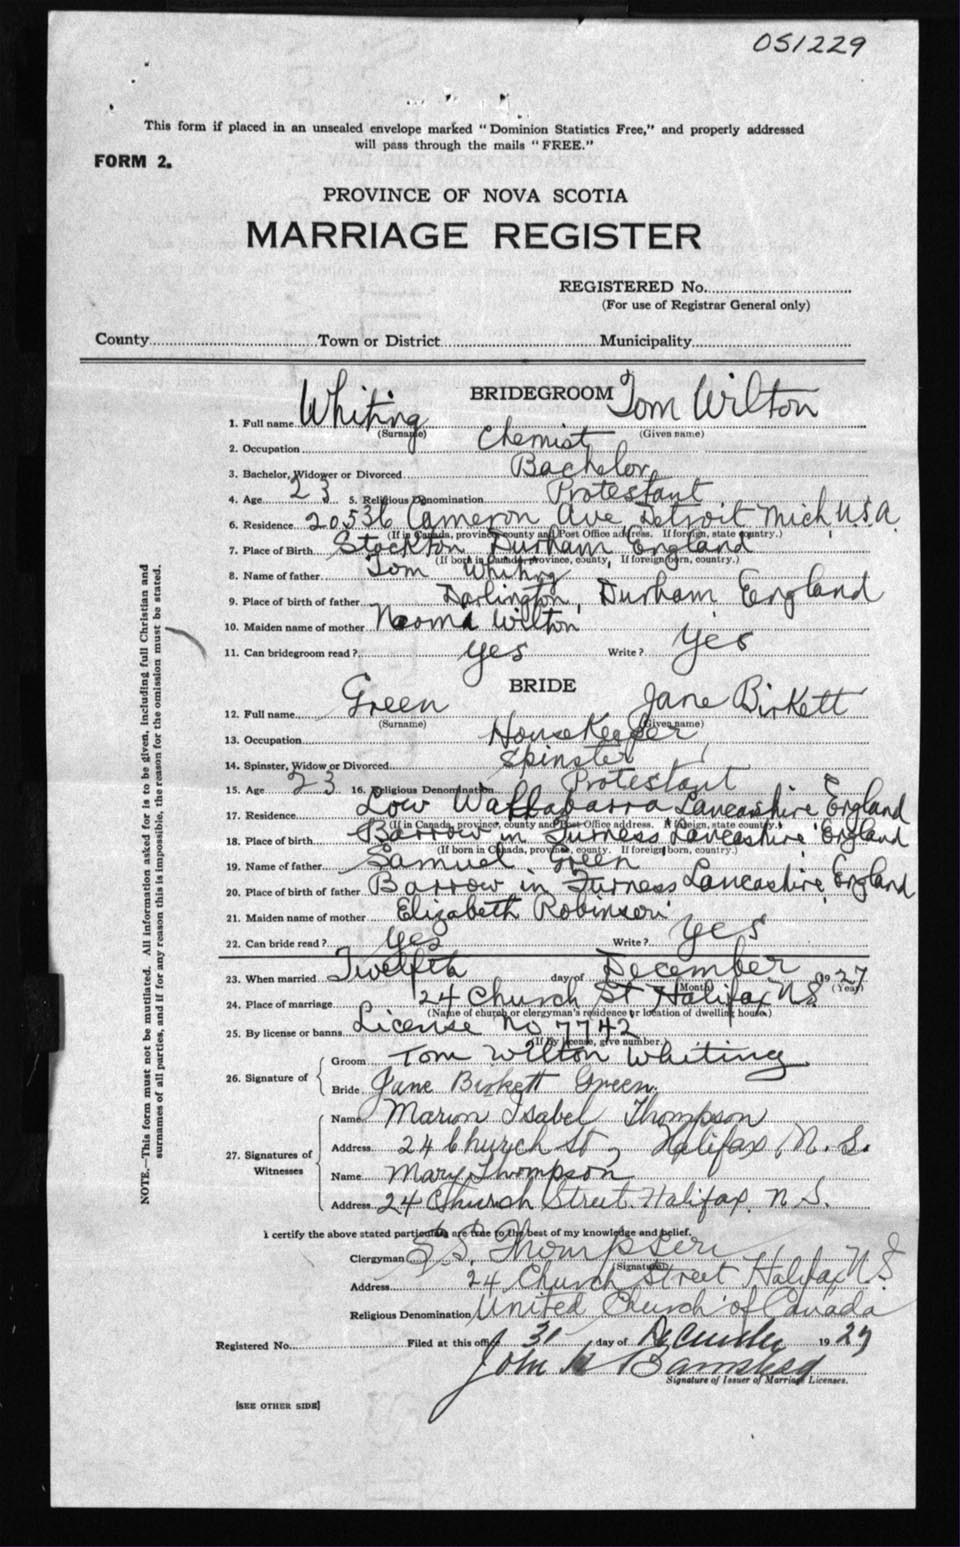 051229
This form if placed in an unsealed envelope marked "Dominion Statistics Free," and properly addressed
will pass through the mails "FREE."
FORM 2.
PROVINCE OF NOVA SCOTIA
MARRIAGE REGISTER
REGISTERED No.
(For use of Registrar General only)
County Town or District Municipality
BRIDEGROOM
1. Full name Whiting Tom Wilton
(Surname) (Given name)
2. Occupation Chemist
3. Bachelor, Widower or Divorced Bachelor
4. Age 23 5. Religious Denomination Protestant
6. Residence 20536 Cameron Ave Detroit Mich U.S.A.
(If in Canada, province county and Post Office address. If foreign, state country.)
7. Place of Birth Stockton Durham England
(If born in Canada, province, county, If foreign born, country.)
8. Name of father Tom Whiting
9. Place of birth of father Darlington, Durham England
10. Maiden name of mother Naomi Wilton
11. Can bridegroom read? yes Write? yes
BRIDE
12. Full name Green Jane Birkett
(Surname) (Given name)
13. Occupation HouseKeeper
14. Spinster, Widow or Divorced Spinster
15. Age 23 16. Religious Denomination Protestant
17. Residence Low Lancashire England
(If in Canada, province, county and Post Office address. If foreign, state country.)
18. Place of birth Barrow in Furness Lancashire England
(If born in Canada, province, county. If foreign born, country.)
19. Name of father Samuel Green
20. Place of birth of father Barrow in Furness Lancashire England
21. Maiden name of mother Elizabeth Robinson
22. Can bride read? yes Write? yes
23. When married Twelfth day of December 1927
(Month) (Year)
24. Place of marriage 24 Church St Halifax N.S.
(Name of church or clergyman's residence or location of dwelling house.)
25. By license or banns License No 7742
(If by license, give number.)
26. Signature of
Groom Tom Wilton Whiting
Bride Jane Birkett Green
27. Signatures of Witnesses
Name Marion Isabel Thompson
Address 24 Church St, Halifax, N. S.
Name Mary Thompson
Address 24 Church Street. Halifax. N. S.
I certify the above stated particulars are true to the best of my knowledge and belief.
Clergyman Thompson
(Signature)
Address 24 Church Street Halifax N S
Religious Denomination United Church of Canada
Registered No. Filed at this office 31 day of December 1927
John
Signature of Issuer of Marriage Licenses.
[SEE OTHER SIDE]
NOTE.—This form must not be mutilated. All information asked for is to be given, including full Christian and
surnames of all parties, and if for any reason this is impossible, the reason for the omission must be stated.